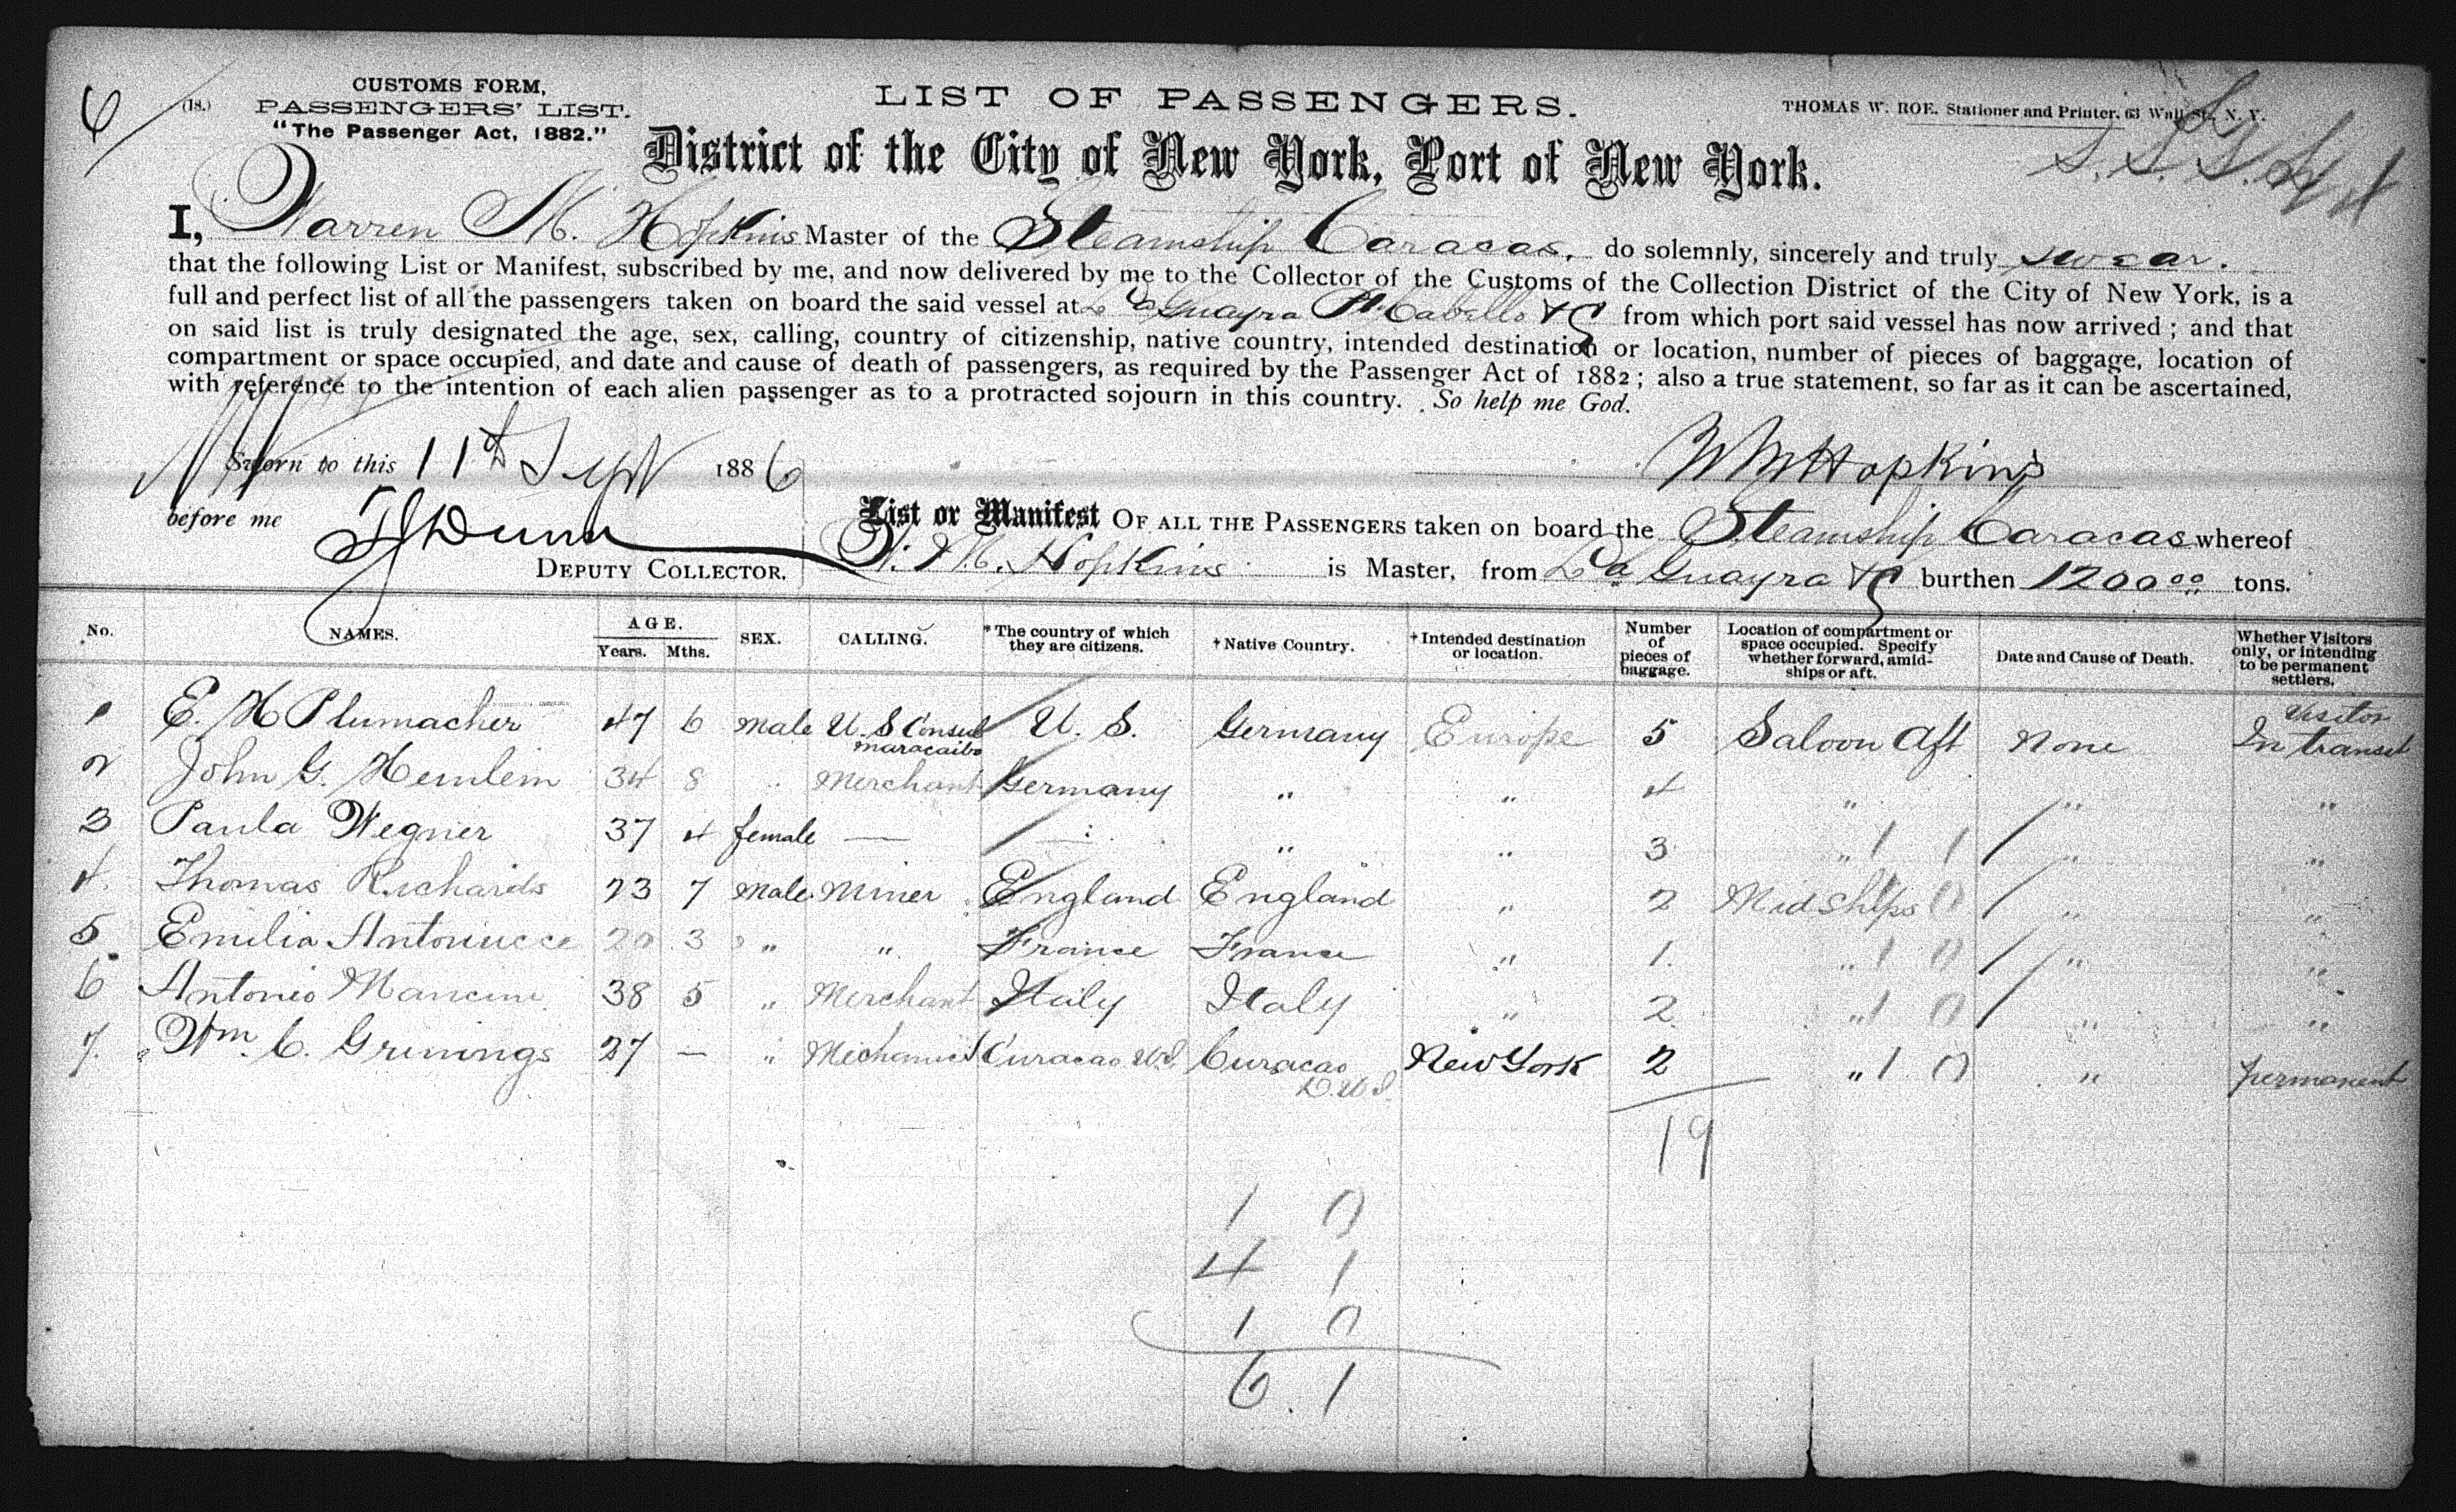 6
(18.)
CUSTOMS FORM,
PASSENGERS' LIST.
"The Passenger Act, 1882."
LIST OF PASSENGERS.
THOMAS W. ROE. Stationer and Printer, 63 Wall St., N. Y.
District of the City of New York, Port of New York.
I, Warren M. Hopkins Master of the Steamship Caracas, do solemnly, sincerely and truly swear.
that the following List or Manifest, subscribed by me, and now delivered by me to the Collector of the Customs of the Collection District of the City of New York, is a
full and perfect list of all the passengers taken on board the said vessel at La Guayra Pt. Cabello & C from which port said vessel has now arrived; and that
on said list is truly designated the age, sex, calling, country of citizenship, native country, intended destination or location, number of pieces of baggage, location of
compartment or space occupied, and date and cause of death of passengers, as required by the Passenger Act of 1882; also a true statement, so far as it can be ascertained,
with reference to the intention of each alien passenger as to a protracted sojourn in this country. So help me God.
Sworn to this 11th Sept 1886
W M Hopkins
before me
Dunn
DEPUTY COLLECTOR.
List or Manifest OF ALL THE PASSENGERS taken on board the Steamship Caracas whereof
W. M. Hopkins is Master, from La Guayra & C burthen 1200 00 tons.
No. NAMES. AGE. Years. Mths. SEX. CALLING. *The country of which they are citizens. †Native Country. †Intended destination or location. Number of pieces of baggage. Location of compartment or space occupied. Specify whether forward, amidships or aft. Date and Cause of Death. Whether Visitors only, or intending to be permanent settlers.
1 E. H Plumacher 47 6 Male U. S Consul Maracaibo U. S. Germany Europe 5 Saloon Aft None Visitor In transit
2 John G. Heinlein 34 8 " Merchant Germany " " 4 " " "
3 Paula Wegner 37 4 female — " " " 3 " 1 1 " "
4. Thomas Richards 23 7 Male Miner England England " 2 Midships 0 " "
5 Emilia Antoniucce 20 3 " " France France " 1. " 1 0 " "
6 Antonio Mancini 38 5 " Merchant Italy Italy " 2 " 1 0 " "
7. Wm. C. Grinings 27 — " Mechanic Curacao W.I. Curacao D.W.I. New York 2 " 1 0 " permanent
19
1 0
4 1
1 0
6. 1